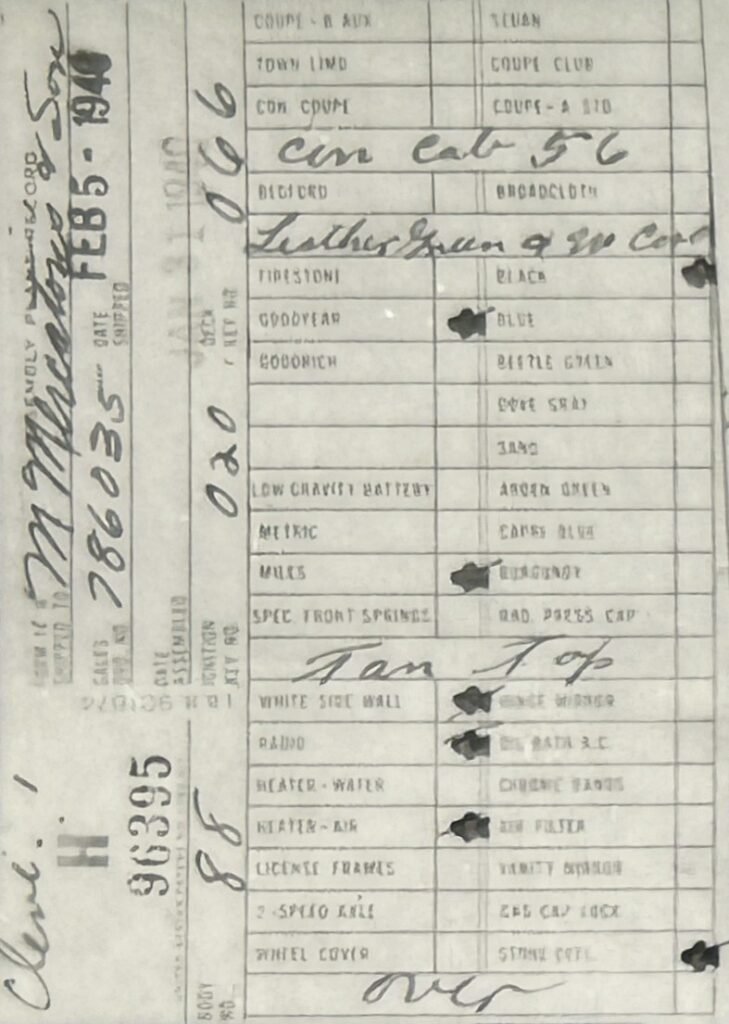 COUPE - B AUX SEDAN
TOWN LIMO COUPE CLUB
CON COUPE COUPE - A STD
Con Cab 56
BEDFORD BROADCLOTH
Leather Green & Cord
FIRESTONE BLACK
GOODYEAR BLUE
GOODRICH BEETLE GREEN
COVE GRAY
SAND
LOW GRAVITY BATTERY GREEN
METRIC BLUE
MILES BURGUNDY
SPEC FRONT SPRINGS RAD PRESS CAP
Tan Top
WHITE SIDE WALL MIRROR
RADIO OIL BATH A.C.
HEATER - WATER CHROME BANDS
HEATER - AIR AIR FILTER
LICENSE FRAMES VANITY MIRROR
2-SPEED AXLE GAS CAP LOCK
WHEEL COVER STONE
over
ASSEMBLY PLANT RECORD
SHIPPED TO M & Son
SALES ORD. NO. 786035 DATE SHIPPED FEB 5 - 1940
DATE ASSEMBLED JAN 31 1940
IGNITION KEY NO. 020 DECK KEY NO. 066
Cleve. 1
H
96395
BODY NO. 88